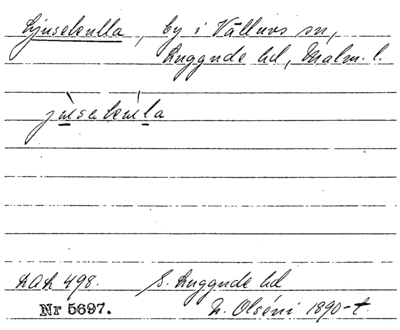 Ljusekulla, by i Välluvs sn,
Luggude hd, Malm. l.
jùsekùl̲a
LAL 498. S. Luggude hd
Nr 5697. N. Olséni 1890-t.